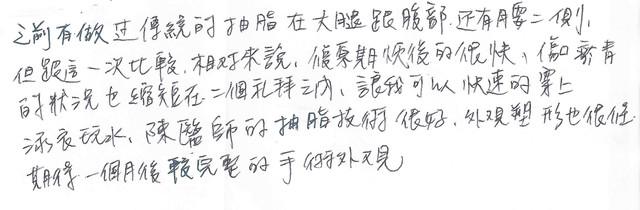 之前有做过傳統的抽脂在大腿跟腹部.還有腰二側,
但跟這一次比較,相對來說,復原期恢復的很快、傷口瘀青
的狀況也縮短在二個礼拜之內、讓我可以快速的穿上
泳衣玩水、陳醫師的抽脂技術很好、外观塑形也很佳
期待一個月後較完整的手術外观